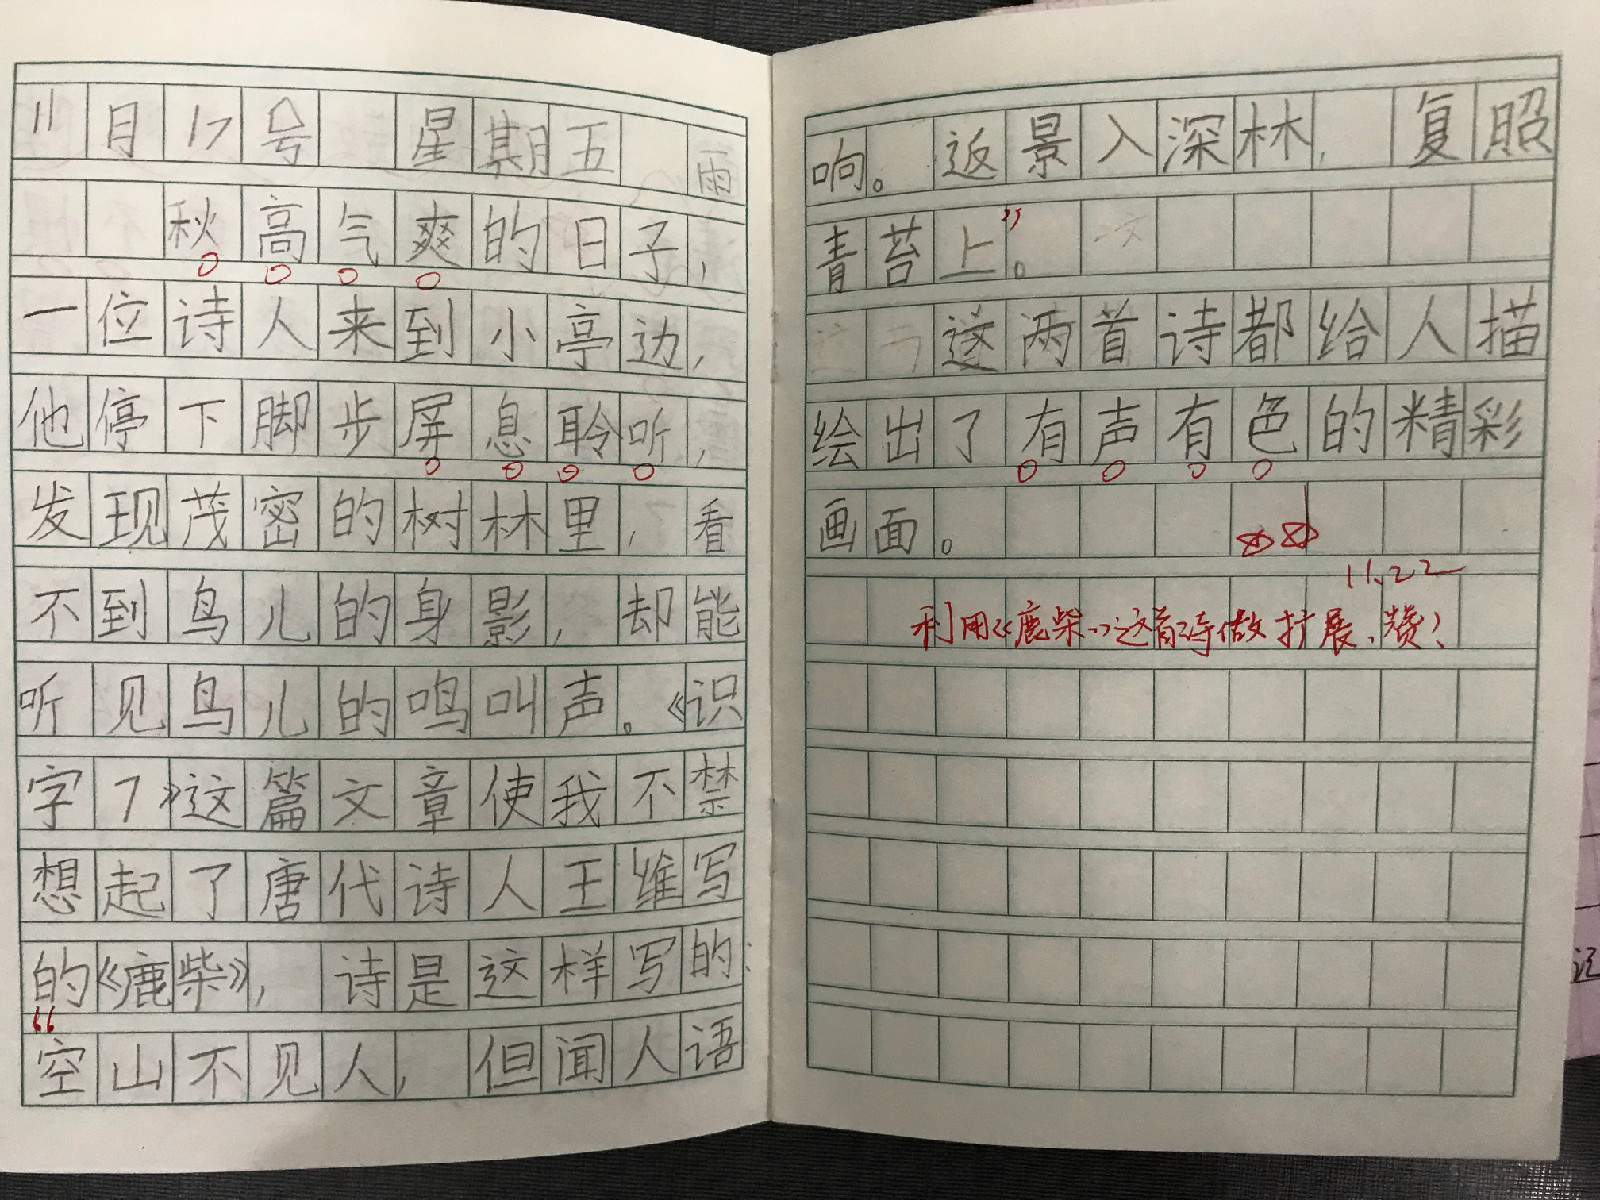 11月17号 星期五 雨
秋高气爽的日子,
一位诗人来到小亭边,
他停下脚步屏息聆听,
发现茂密的树林里,看
不到鸟儿的身影,却能
听见鸟儿的鸣叫声。《识
字7》这篇文章使我不禁
想起了唐代诗人王维写
的《鹿柴》, 诗是这样写的:
“空山不见人, 但闻人语
响。 返景入深林, 复照
青苔上”。
这两首诗都给人描
绘出了有声有色的精彩
画面。
11.22
利用《鹿柴》这首诗做扩展、赞!
记